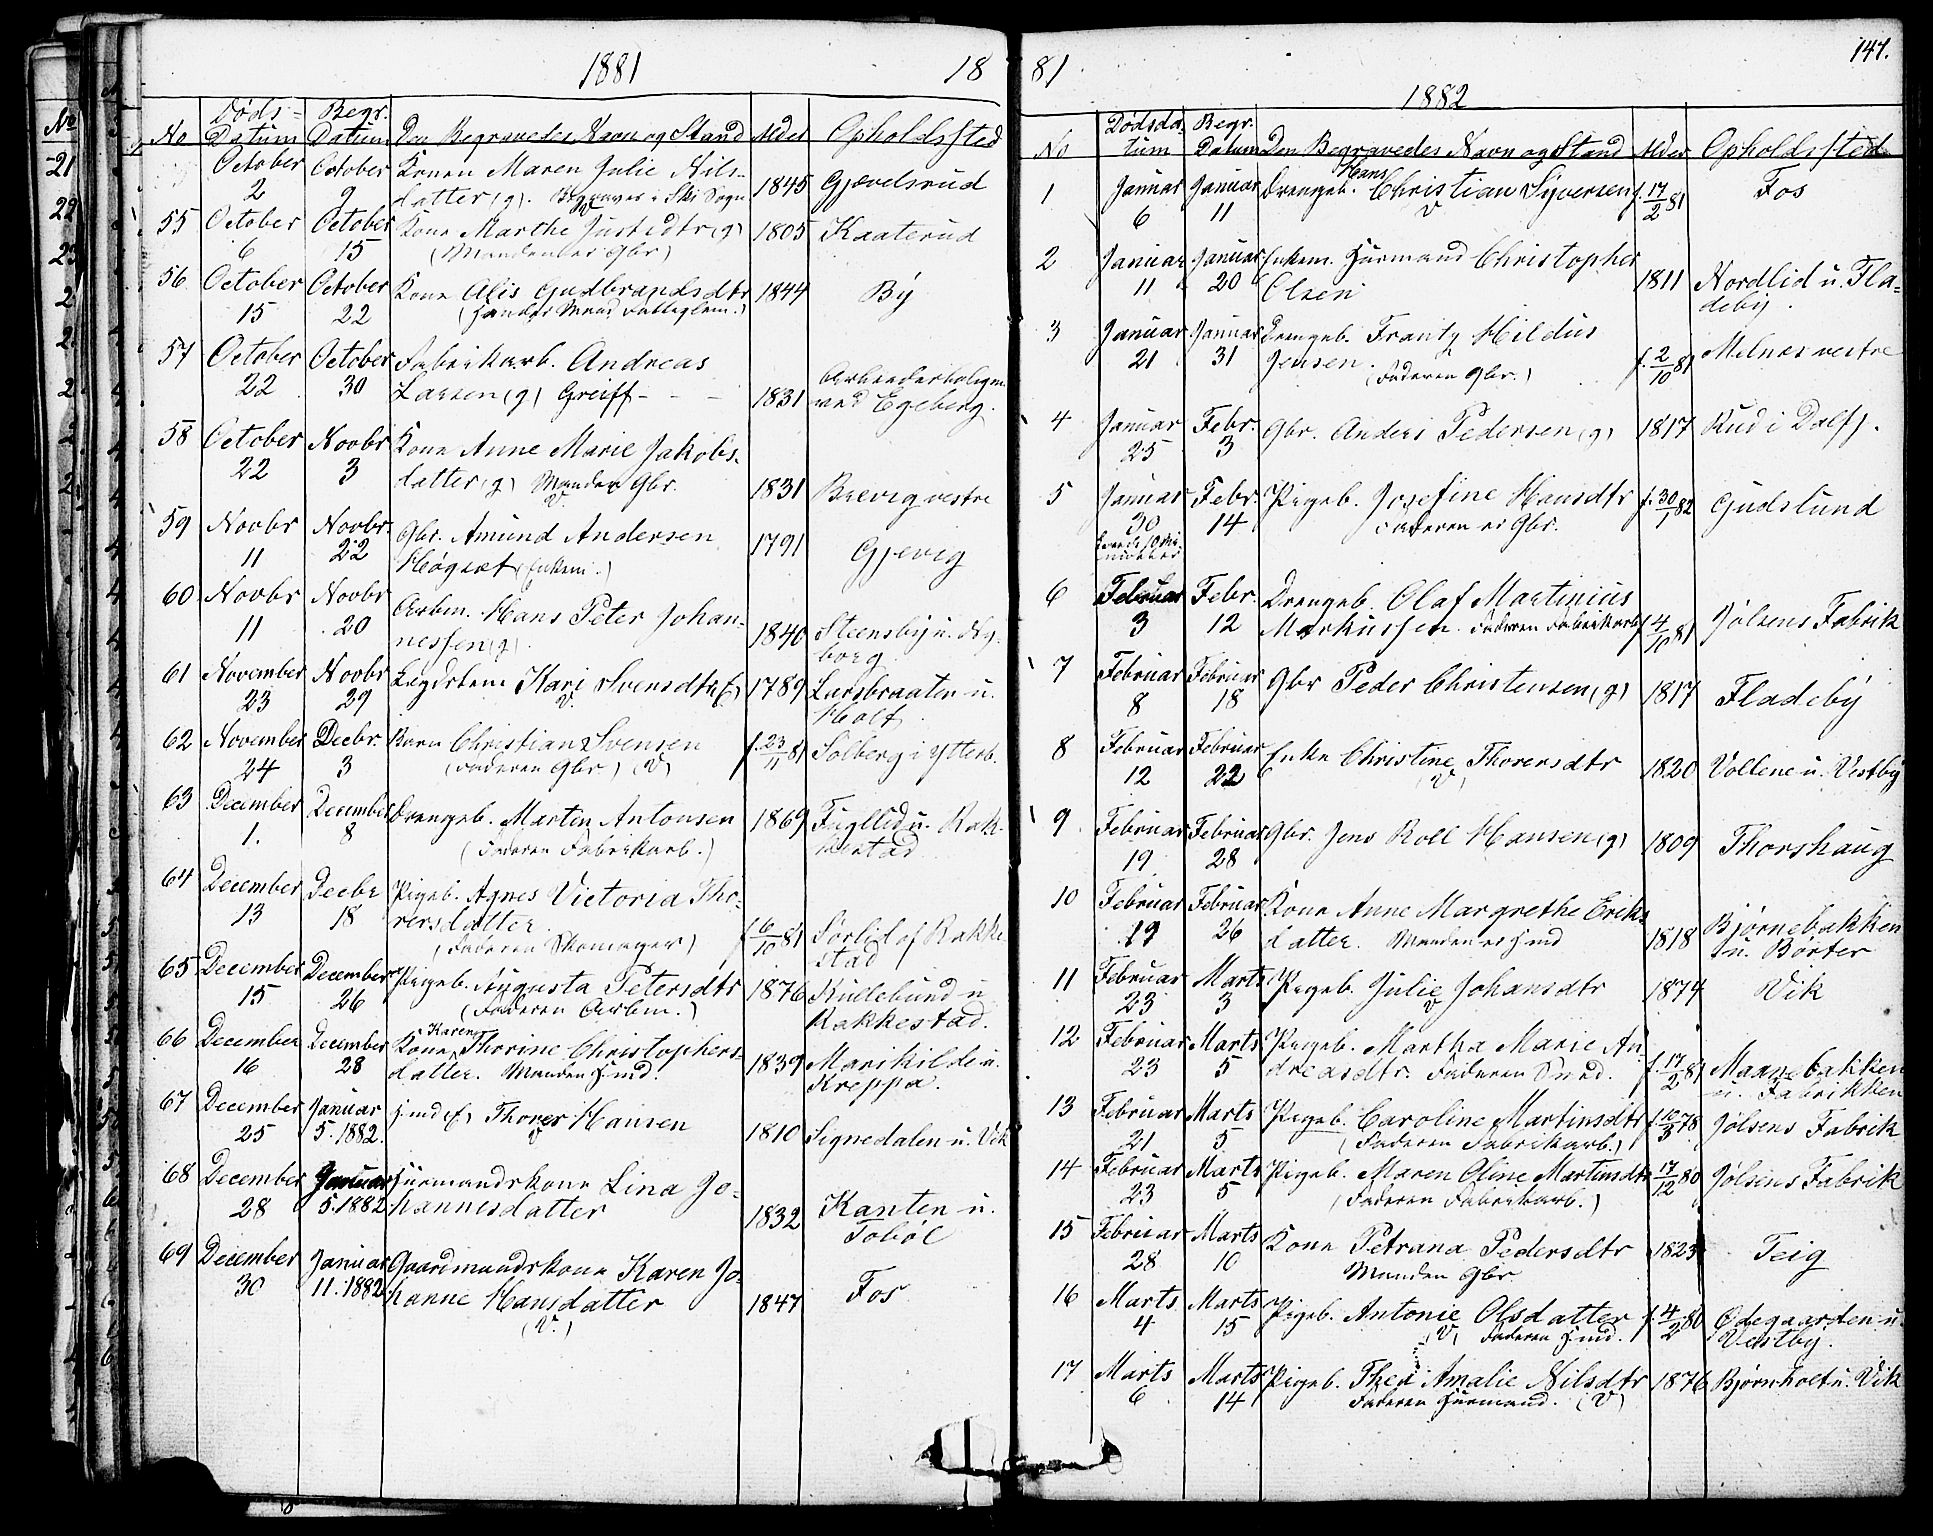 1881
18
No
Døds-
Datum
Begr.
Datum
Den Begravedes Navn og Stand
Alder
Opholdssted
October
2
October
9
Konen Maren Julie Nils-
datter (g). Begraves i Ski Sogn
1845
Gjævelsrud
55
October
6
October
15
Kone Marthe Justsdtr (g)
(Manden er Gbr)
1805
Kaaterud
56
October
15
October
22
Kone Alis Gudbrandsdtr
1844
By
57
October
22
October
30
Fabrikarb. Andreas
Larsen (g) Greiff - - -
1831
Arbeiderboligen
ved Egeberg.
58
October
22
Novbr
3
Kone Anne Marie Jakobs-
datter (g) Manden Gbr.
V.
1831
Brevig vestre
59
Novbr
11
Novbr.
22
Gbr. Amund Andersen
Høgset (Enkem.)
1791
Gjevig
60
Novbr
11
Novbr
20
Arbm. Hans Peter Johan-
nessen (g).
1840
Steensby u.
borg
61
November
23
Novbr
29
Lægdslem Kari Svensdtr (f)
V.
1789
Larsbraaten u.
Holt.
62
November
24
Decbr.
3
Barn Christian Svensen
(Faderen Gbr) (V)
f. 23/11 81
Solberg i Ytterb.
63
December
1.
December
8
Drengeb. Martin Antonsen
(Faderen Fabrikarb.)
1869
Fuglelid u. Rak-
kestad
64
December
13
Decbr
18
Pigeb. Agnes Victoria Tho-
rersdatter.
(Faderen Skomager)
f. 6/10 81
Sorlid af Rakke
stad
65
December
15
December
26
Pigeb. Augusta Petersdtr
(Faderen Arbm.)
1876
Kullebund u
Rakkestad.
66
December
16
December
28
Karen
Kone Thorine Christophers-
datter. Manden Hmd.
1839
Marikilde u.
Kreppa.
67
December
25
Januar
5. 1882.
Hmd (f) Thorer Hansen
V
1810
Signedalen u. Vik
68
December
28
Januar
5. 1882
Huusmandskone Lina Jo-
hannesdatter
1832
Kanten u.
Tobøl
69
December
30
Januar
11. 1882
Gaardmandskone Karen Jo-
hanne Hansdatter
(V.)
1847
Fos
81
147.
1882
No
Dødsda-
tum
Begr.
Datum
Den Begravedes Navn og Stand
Alder
Opholdssted
1
Januar
6
Januar
11
Hans
Drengeb. Christian Syversen
V
f. 17/2 81
Fos
2
Januar
11
Januar
20
Enkem. Huusmand Christopher
Olsen
1811
Nordlid u. Fla-
deby.
3
Januar
21
Januar
31
Drengeb. Frantz Hildus
Jensen.
(Faderen Gbr.)
f. 2/10 81
Melnes vestre
4
Januar
25
Febr.
3
Gbr. Anders Pedersen (g)
1817
Rud i Dalfj.
5
Januar
30
Febr.
14
Pigeb. Josefine Hansdtr
Faderen er Gbr.
f. 30/1 82
Gudslund
6
Februar
3
Febr.
12
Drengeb. Olaf Martinius
Markussen. Faderen Fabrikarb.
f. 4/10 81
Jølsens Fabrik
7
Februar
8
Februar
18
Gbr Peder Christensen (g)
1817
Fladeby
8
Februar
12
Februar
22
Enke Christine Thorersdtr
(V)
1820
Vollene u. Vestby
9
Februar
19
Februar
28
Gbr. Jens Roll Hansen (g)
1809
Thorshaug
10
Februar
19
Februar
26
Kone Anne Margrethe Eriks
datter. Manden er Hmd
1818
Bjørnebakken
u. Børter
11
Februar
23
Marts
3
Pigeb. Julie Johansdtr
V
1874
Vik
12
Februar
23
Marts
5
Pigeb. Martha Marie An-
dreasdtr. Faderen Smed.
f. 17/2 81
Maanebakken
u. Fabrikken
13
Februar
21
Marts
5
Pigeb. Caroline Martinsdtr
(Faderen Fabrikarb.)
f. 10/3 78
Jølsens Fabrik
14
Februar
23
Marts
5
Pigeb. Maren Oline Martinsdtr
(Faderen Fabrikarb.)
17/12 80
Jølsens Fabrik
15
Februar
28
Marts
10
Kone Petrana Pedersdtr
Manden Gbr
1823
Teig
16
Marts
4
Marts
15
Pigeb. Antonie Olsdatter
(V) Faderen Hmd.
f. 4/2 80
Ødegaarden u.
Vestby.
17
Marts
6
Marts
14
Pigeb. Thea Amalie Nilsdtr
Faderen Huusmand. (V)
1876
Bjørnholt u. Vik